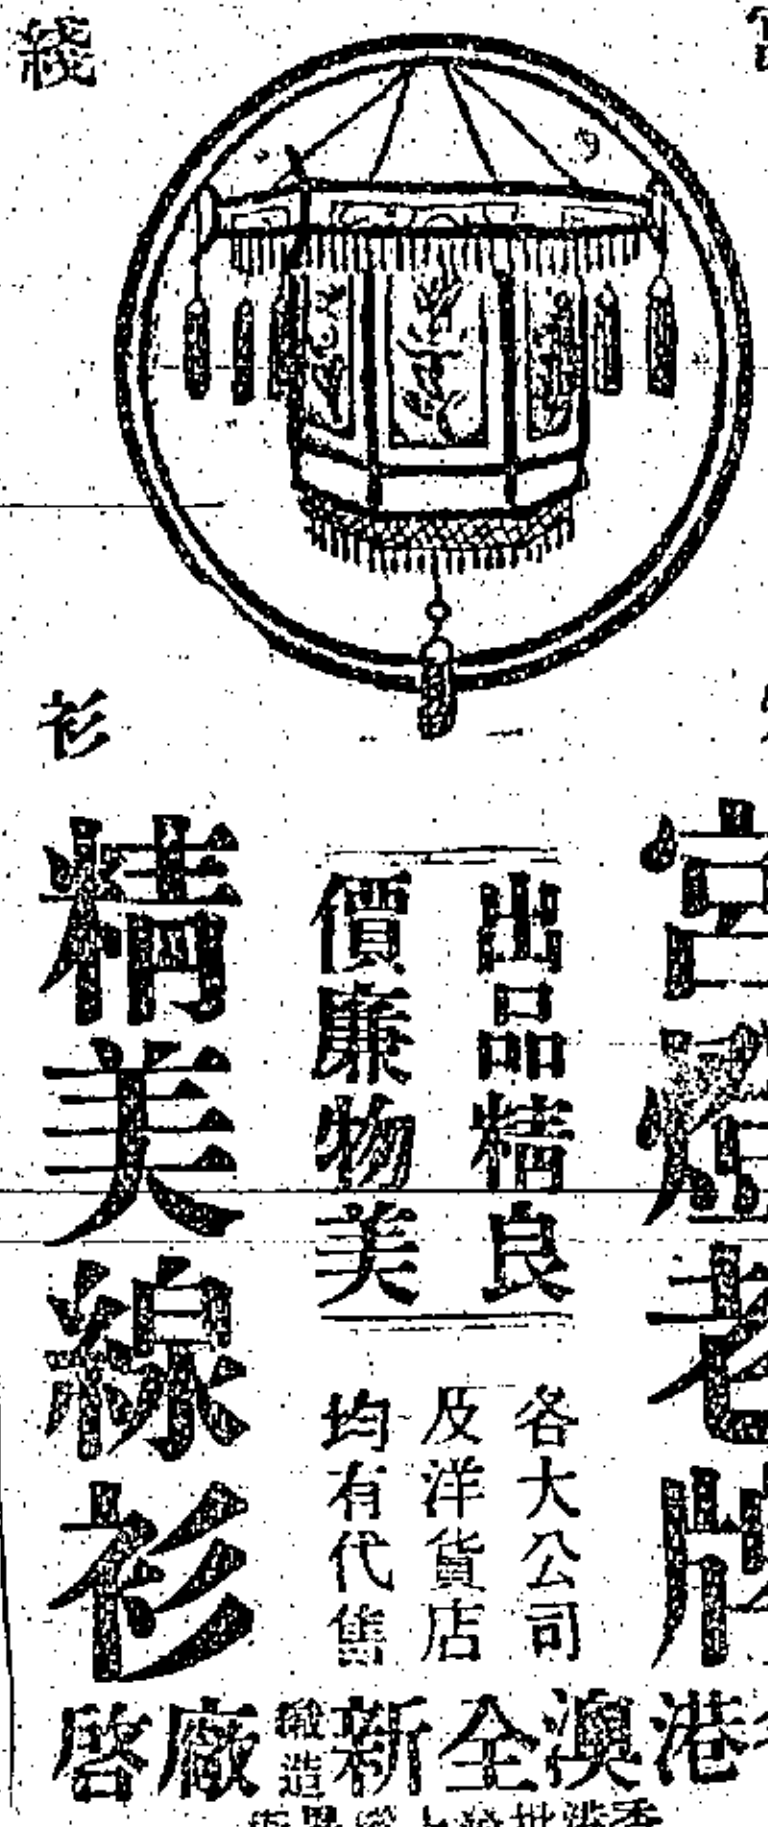 綫
衫
宮燈老牌
出品精良
價廉物美
各大公司
及洋貨店
均有代售
精美線衫
港澳全新織造廠啓